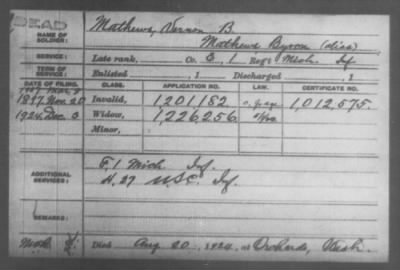 DEAD
NAME OF SOLDIER: Mathews, Vernon B.
Mathews Byron (alias)
SERVICE: Late rank, Co. E, 1 Reg't Mich. Inf
TERM OF SERVICE: Enlisted , 1 Discharged , 1
DATE OF FILING. CLASS. APPLICATION NO. LAW. CERTIFICATE NO.
1897 Nov. 20 Invalid, 1,201,182 1,012,575.
1924 Dec 3 Widow, 1,226,256
Minor,
ADDITIONAL SERVICES: F, 1 Mich. Inf.
H. 27 U.S.C. Inf.
REMARKS:
Died Aug 20, 1924, at Orchards, Wash.